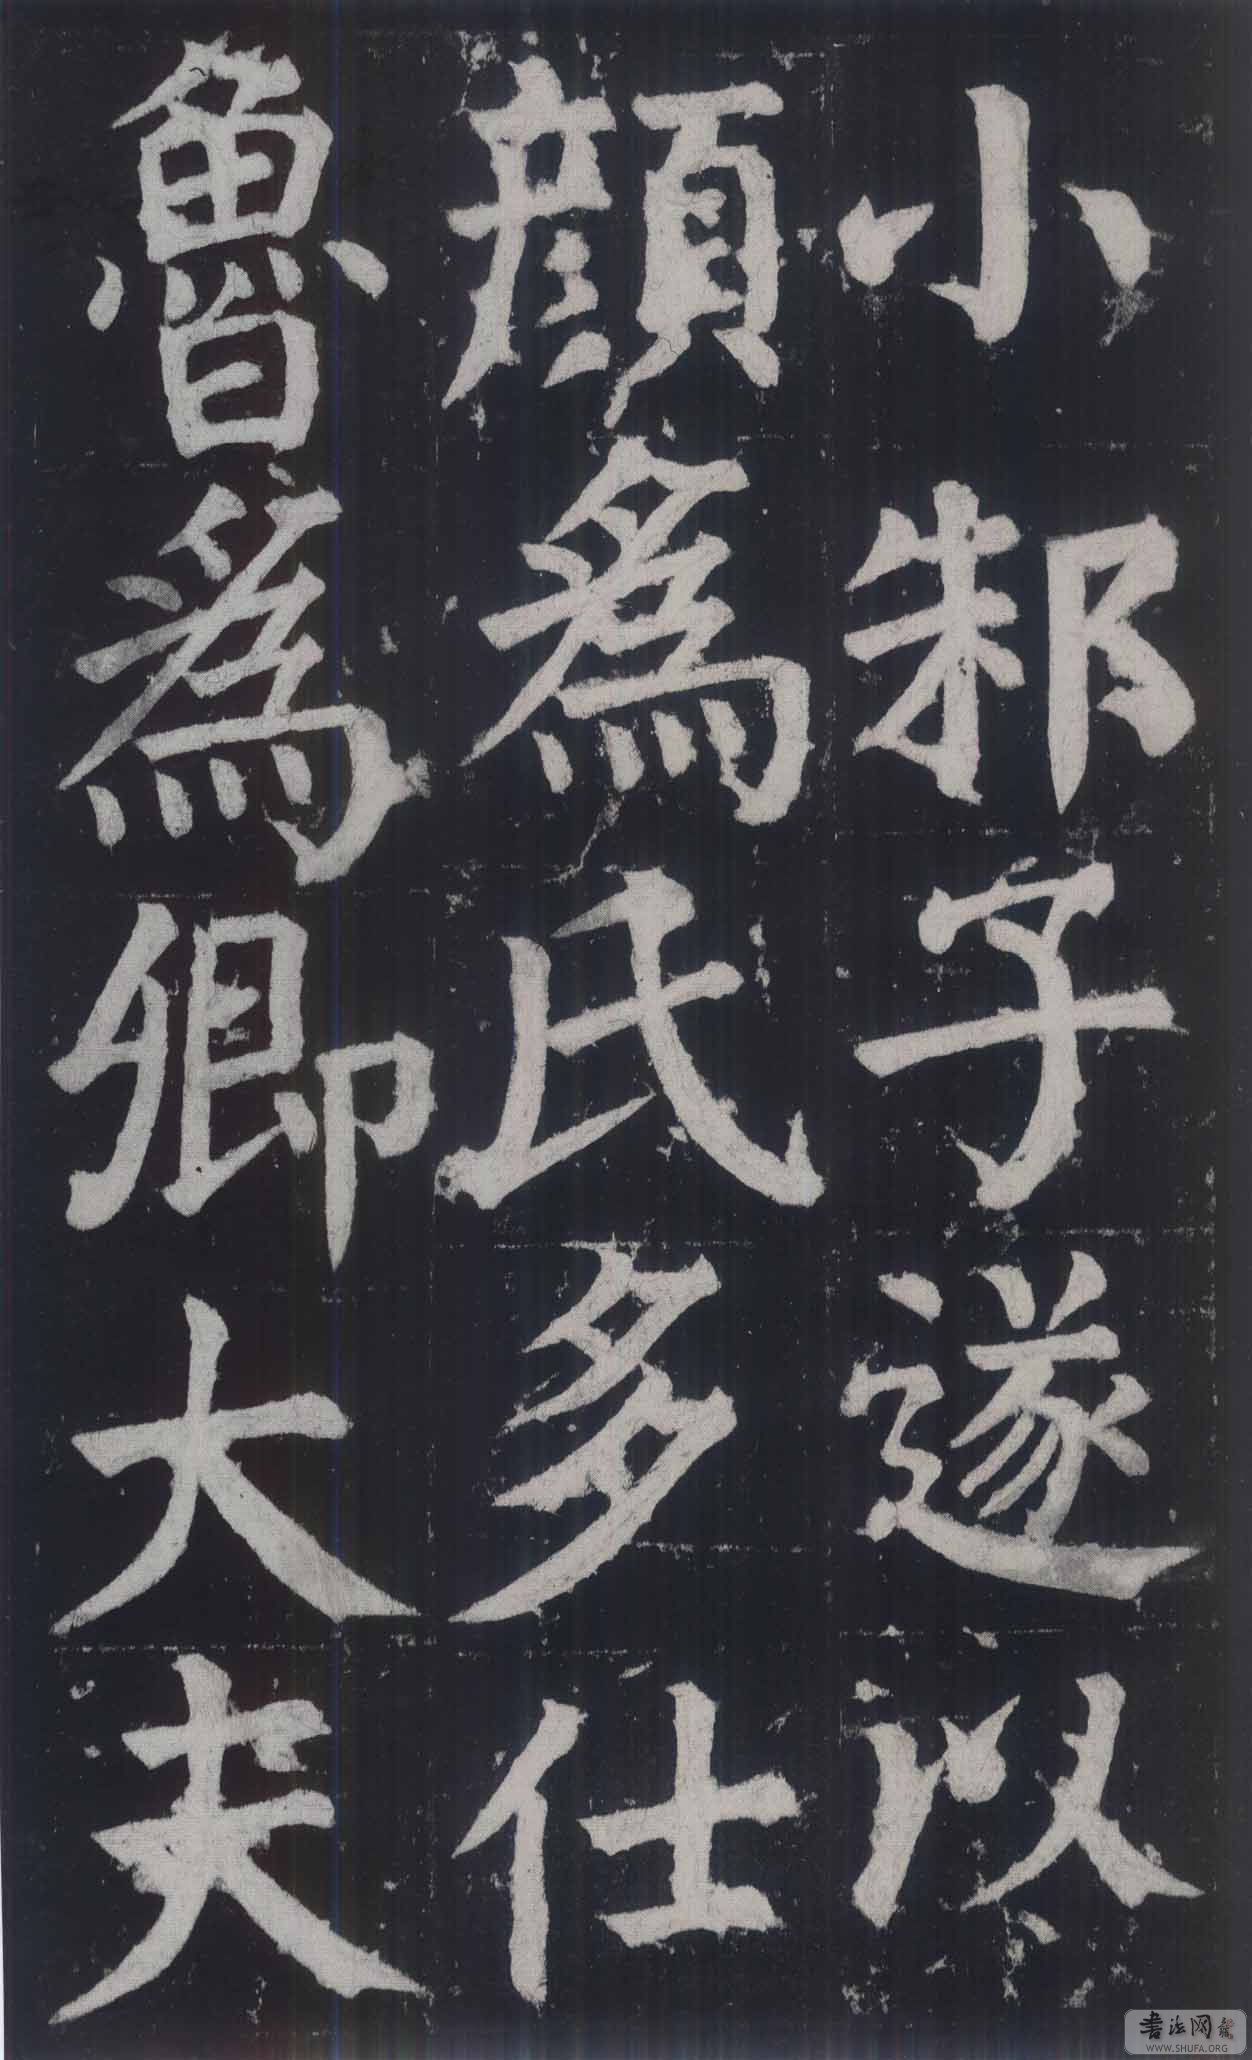 小邾子遂以
顏為氏多仕
魯為卿大夫
书法网
WWW.SHUFA.ORG